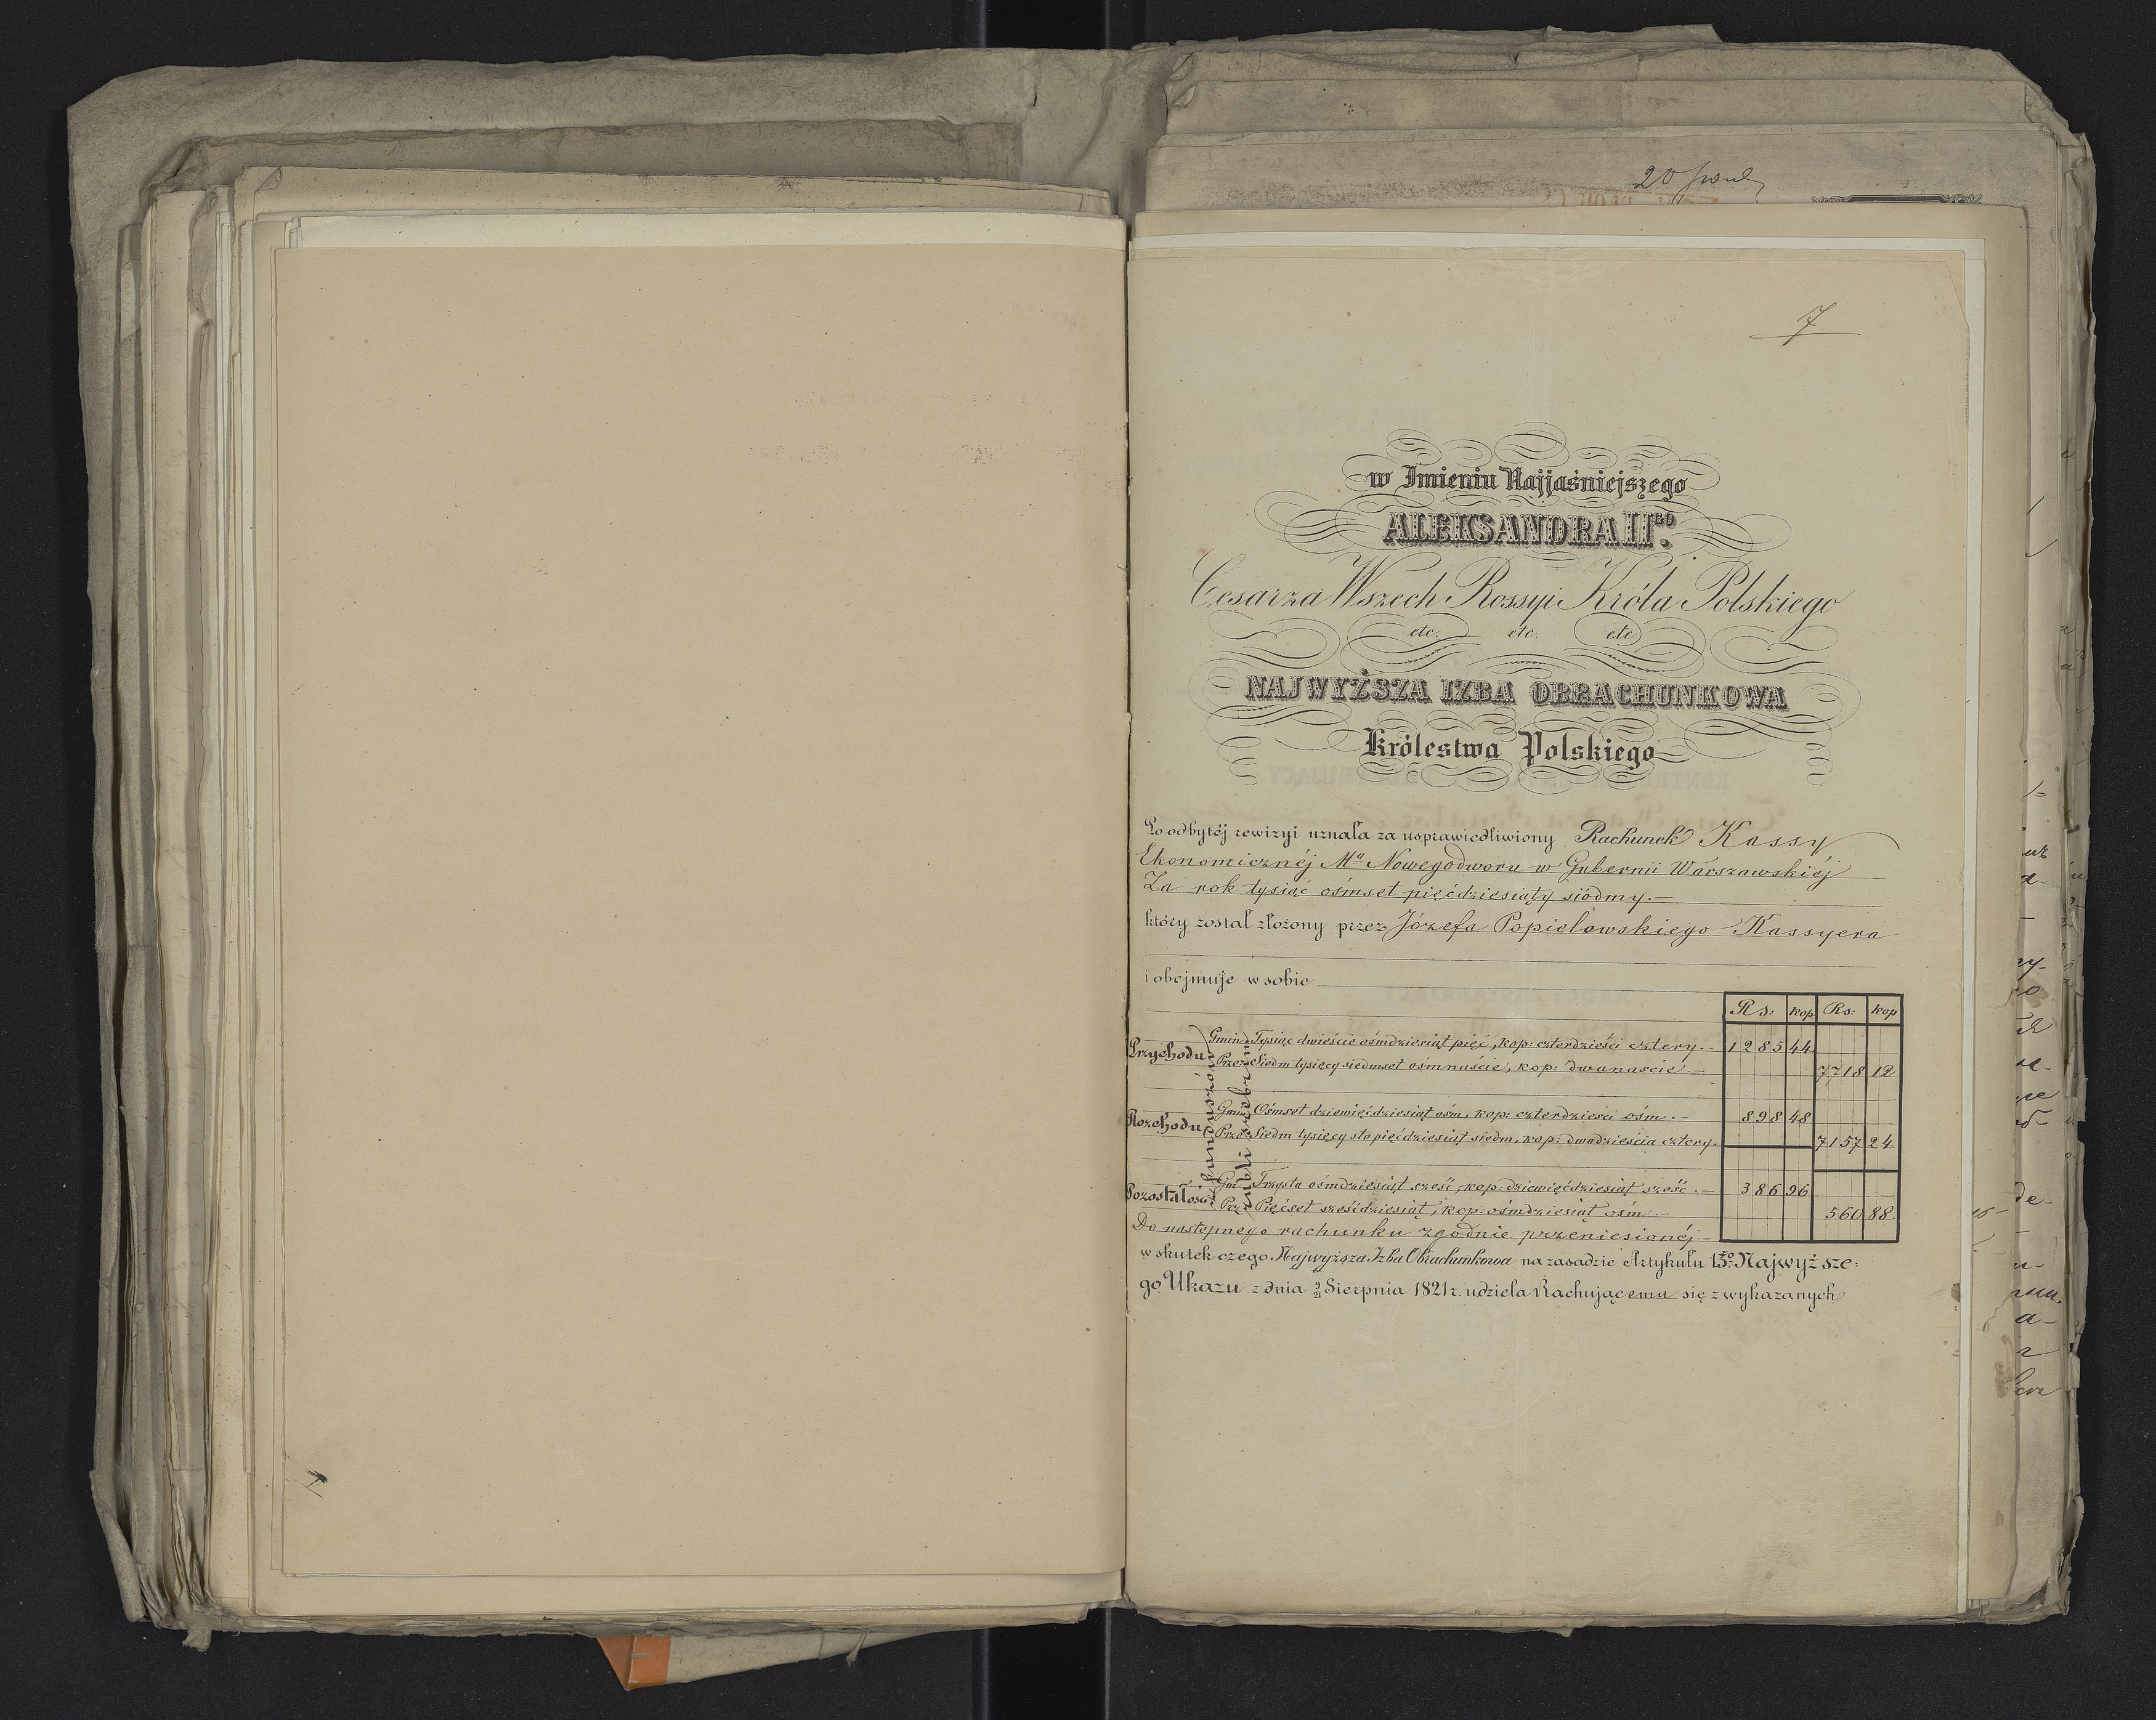 7
w Imieniu Najjaśniejszego
ALEKSANDRA IIGO
Cesarza Wszech Rossyi Króla Polskiego
etc. etc. etc.
NAJWYŻSZA IZBA OBRACHUNKOWA
Królestwa Polskiego
Po odbytéj rewizyi uznała za usprawiedliwiony Rachunek Kassy
Ekonomicznéj Mta Nowegodworu w Gubernii Warszawskiéj
Za rok tysiąc ośmset pięćdziesiąty siódmy.—
który został złożony przez Józefa Popielawskiego Kassyera
i obejmuje w sobie
Rs: kop Rs: kop
Przychodu Gmin Tysiąc dwieście ośmdziesiąt pięć, kop: czterdzieści cztery.— 1285 44
Prze Siedm tysięcy siedmset ośmnaście, kop: dwanaście.— 7718 12
Rozchodu Gmin Ośmset dziewięćdziesiąt ośm, kop: czterdzieści ośm.— 898 48
Prze Siedm tysięcy sto pięćdziesiąt siedm, kop: dwadzieścia cztery. 7157 24
Pozostałości Gm Trzysta ośmdziesiąt sześć, kop: dziewięćdziesiąt sześć.— 386 96
Prze Pięćset sześćdziesiąt, kop: ośmdziesiąt ośm.— 560 88
funduszów
rubli srebrem
Do następnego rachunku zgodnie przeniesionéj.—
w skutek czego Najwyższa Izba Obrachunkowa na zasadzie Artykułu 13go Najwyższe:
go Ukazu z dnia 9/21 Sierpnia 1821 r. udziela Rachującemu się z wykazanych